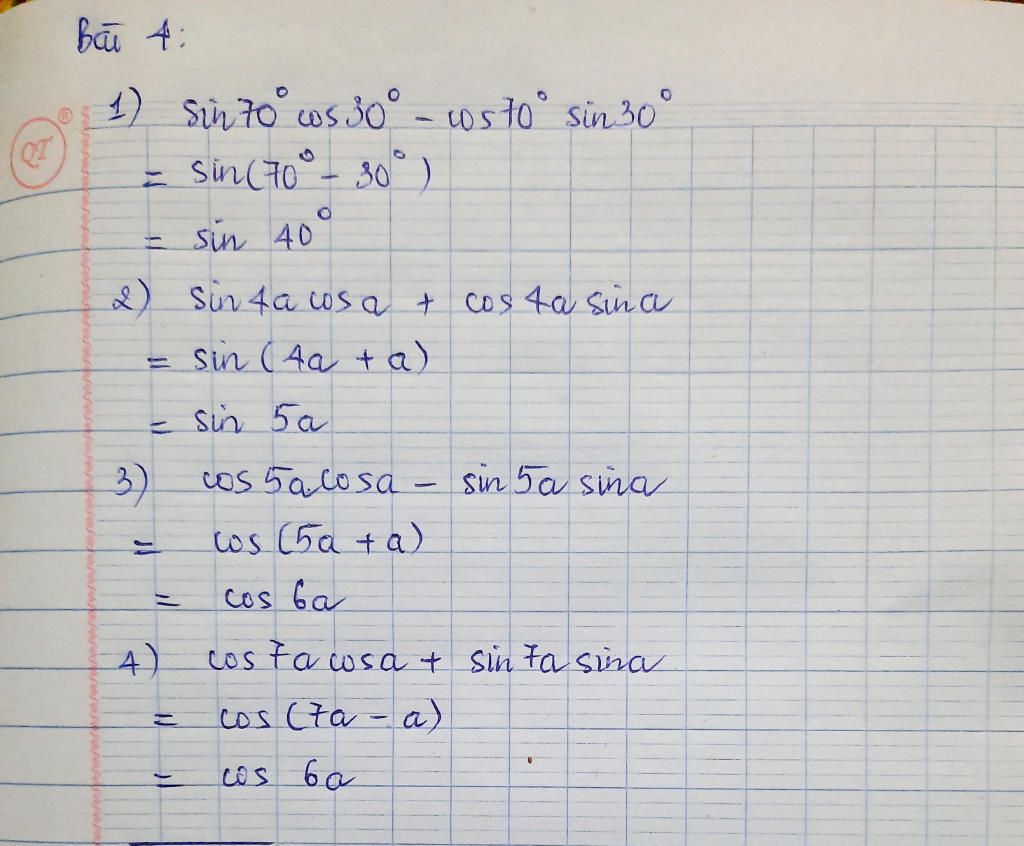 Bài 4:
1) sin70° cos30° - cos70° sin30°
= sin(70° - 30°)
= sin 40°
2) sin4a cosa + cos4a sina
= sin (4a + a)
= sin 5a
3) cos5acosa - sin5a sina
= cos (5a + a)
= cos 6a
4) cos7a cosa + sin7a sina
= cos (7a - a)
= cos 6a
QT ®